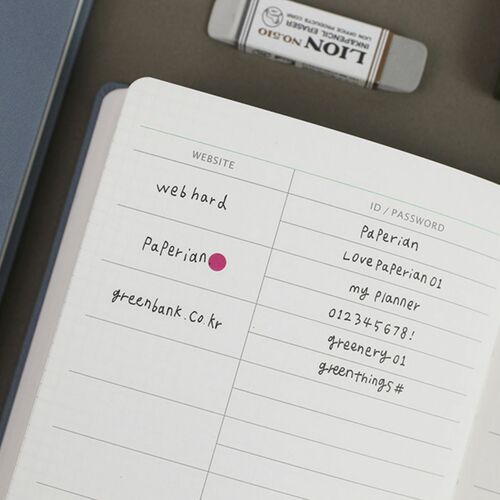 LION
NO.510
INK&PENCIL ERASER
LION OFFICE PRODUCTS CORP.
WEBSITE
ID / PASSWORD
webhard
Paperian
LovePaperian01
Paperian.
my Planner
012345678!
greenbank.co.kr
greenery01
greenthings#